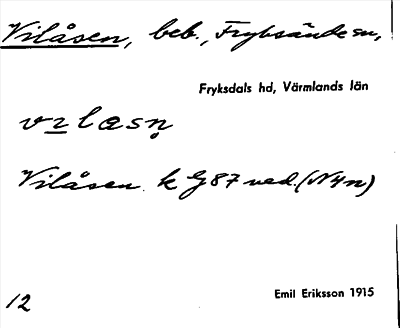 Vilåsen, beb., Fryksände sn,
Fryksdals hd, Värmlands län
vılasṇ
Vilåsen k G87 ved. (N4n)
Emil Eriksson 1915
12